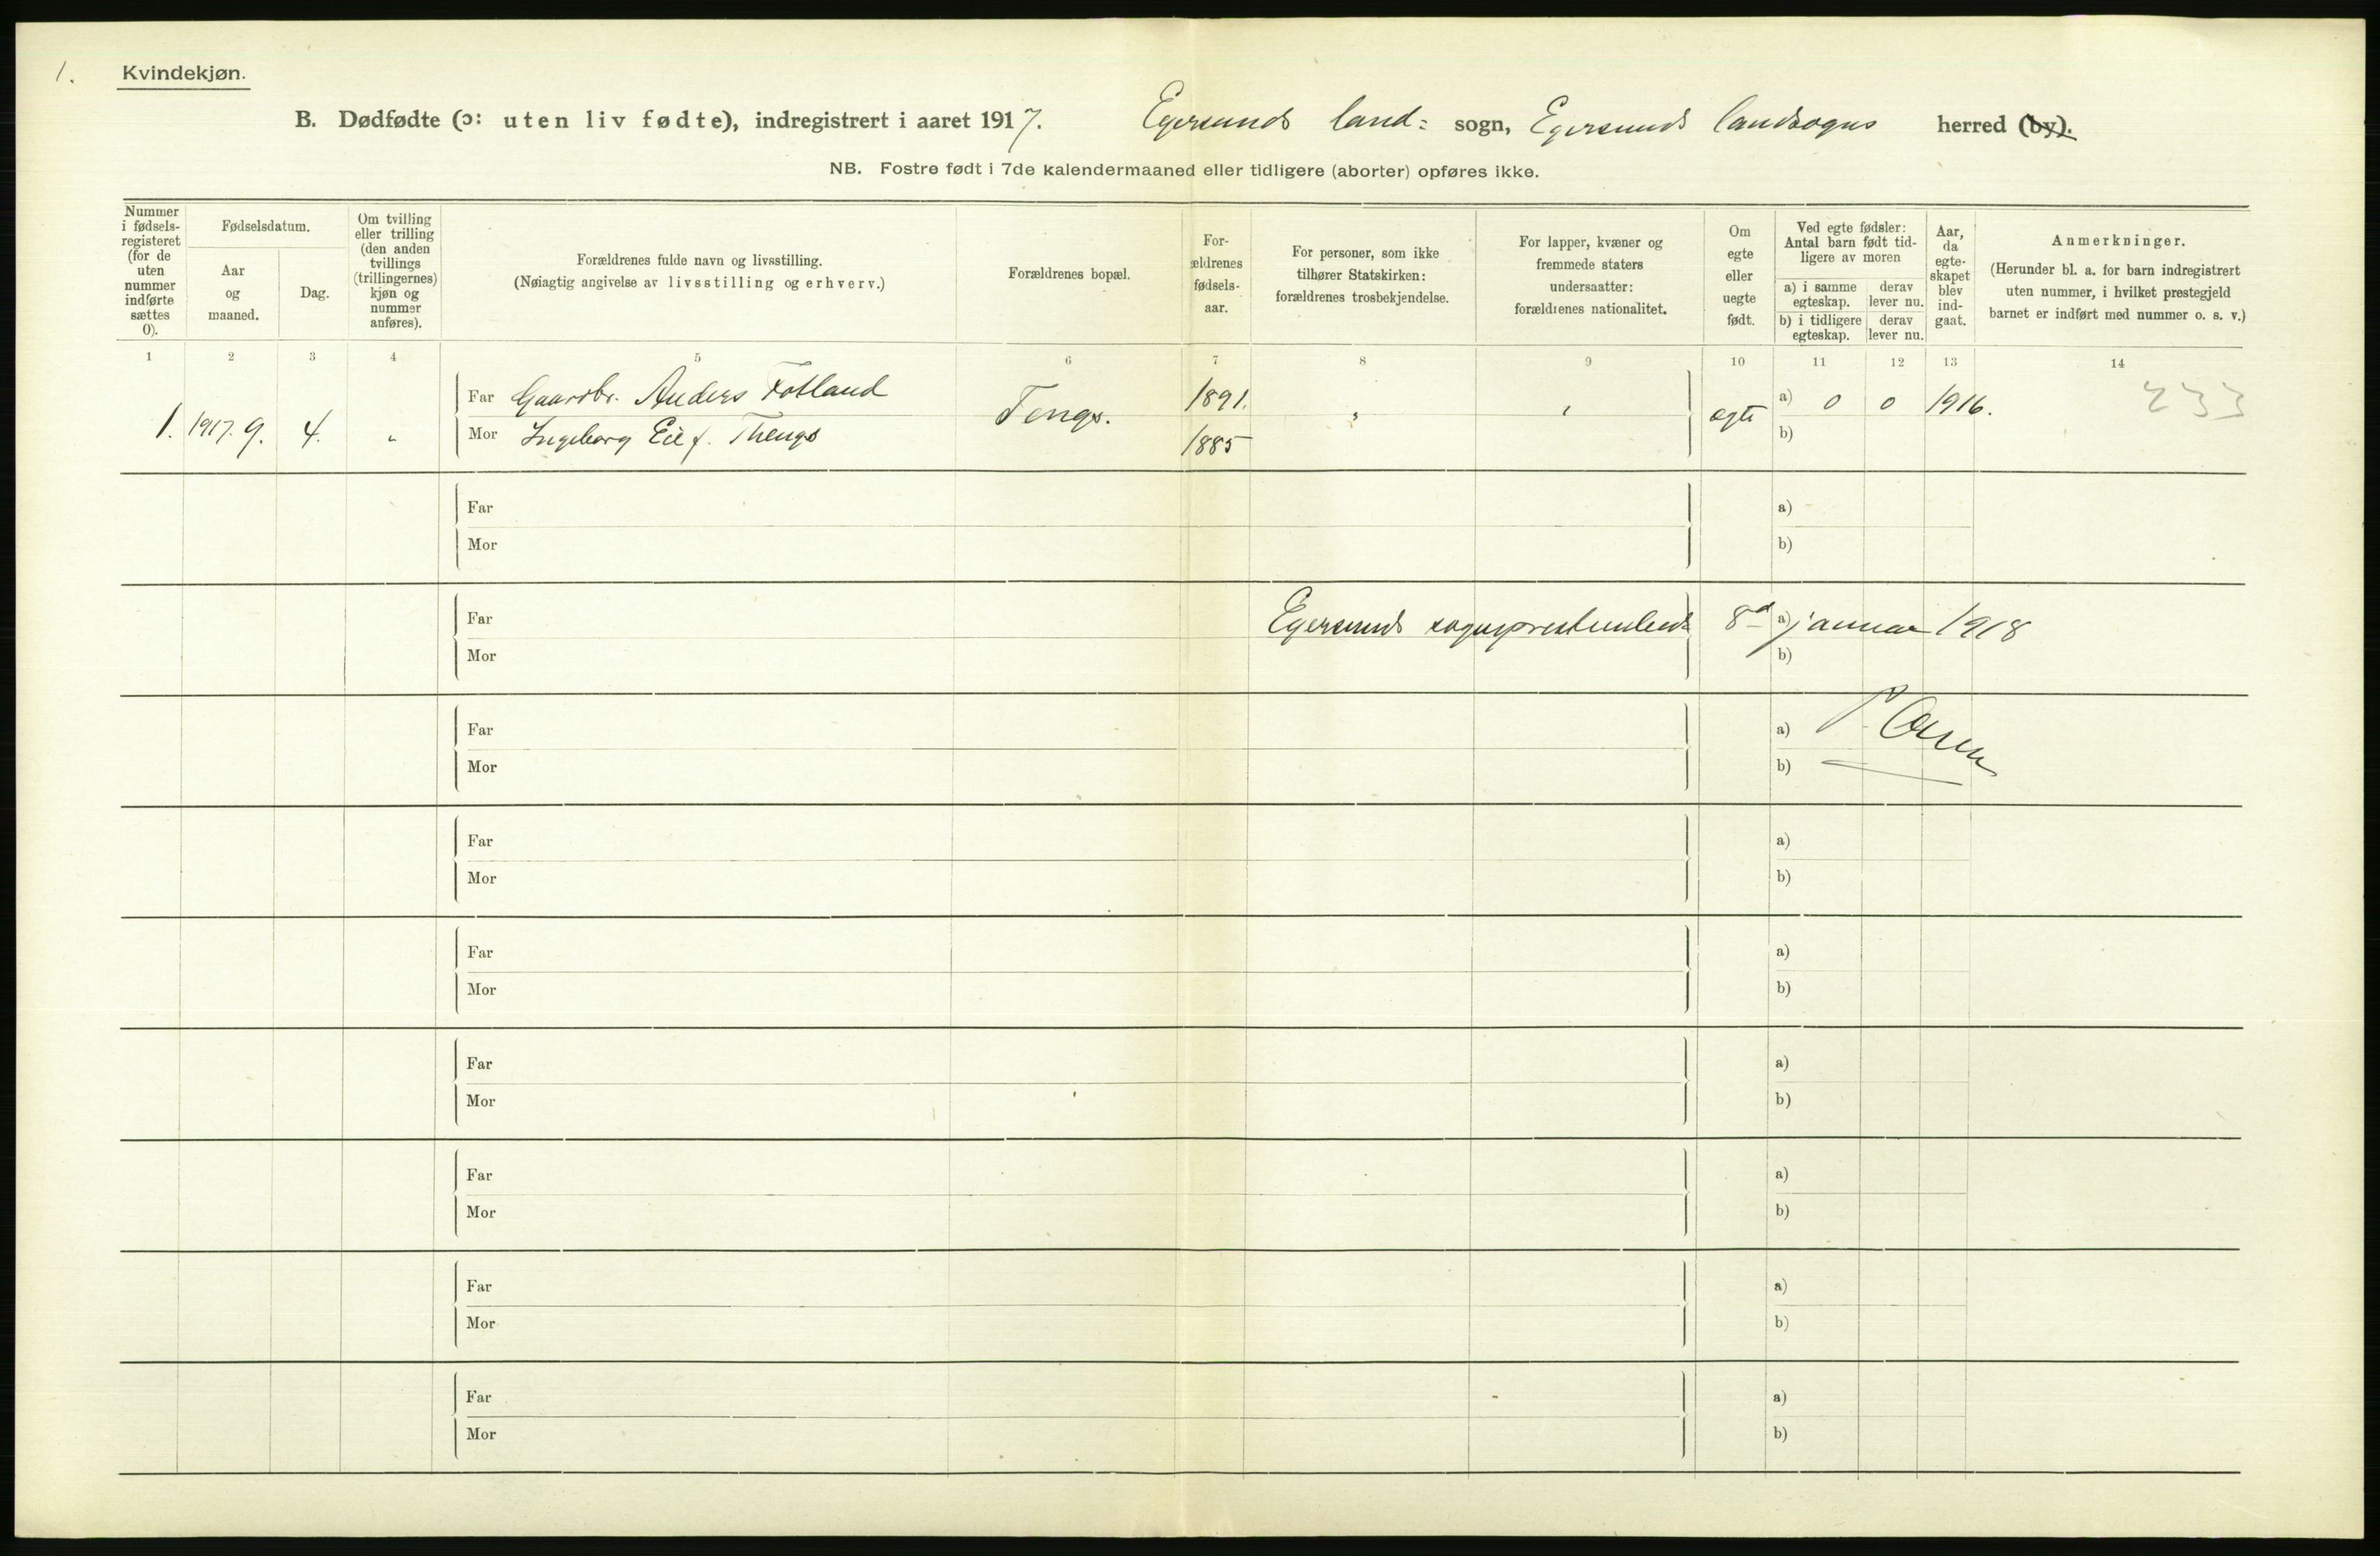 1.
Kvindekjøn.
B. Dødfødte (ɔ: uten liv fødte), indregistrert i aaret 1917. Egersunds land= sogn, Egersunds landsogns herred (by).
NB. Fostre født i 7de kalendermaaned eller tidligere (aborter) opføres ikke.
Nummer i fødsels-registeret (for de uten nummer indførte sættes 0).
Fødselsdatum.
Aar og maaned.
Dag.
Om tvilling eller trilling (den anden tvillings (trillingernes) kjøn og nummer anføres).
Forældrenes fulde navn og livsstilling.
(Nøiagtig angivelse av livsstilling og erhverv.)
Forældrenes bopæl.
For-ældrenes fødsels-aar.
For personer, som ikke tilhører Statskirken: forældrenes trosbekjendelse.
For lapper, kvæner og fremmede staters undersaatter: forældrenes nationalitet.
Om egte eller uegte født.
Ved egte fødsler: Antal barn født tid-ligere av moren
a) i samme egteskap.
derav lever nu.
b) i tidligere egteskap.
derav lever nu.
Aar, da egte-skapet blev ind-gaat.
Anmerkninger.
(Herunder bl. a. for barn indregistrert uten nummer, i hvilket prestegjeld barnet er indført med nummer o. s. v.)
1 2 3 4 5 6 7 8 9 10 11 12 13 14
1. 1917. 9. 4. „ Far Gaardbr. Anders Fotland Tengs. 1891. „ „ egte a) 0 0 1916. 233
Mor Ingeborg f. Thengs 1885 b)
Far a)
Mor b)
Far Egersunds sogneprestembede 8d a) januar 1918
Mor b)
Far a)
Mor b)
Far a)
Mor b)
Far a)
Mor b)
Far a)
Mor b)
Far a)
Mor b)
Far a)
Mor b)
Far a)
Mor b)